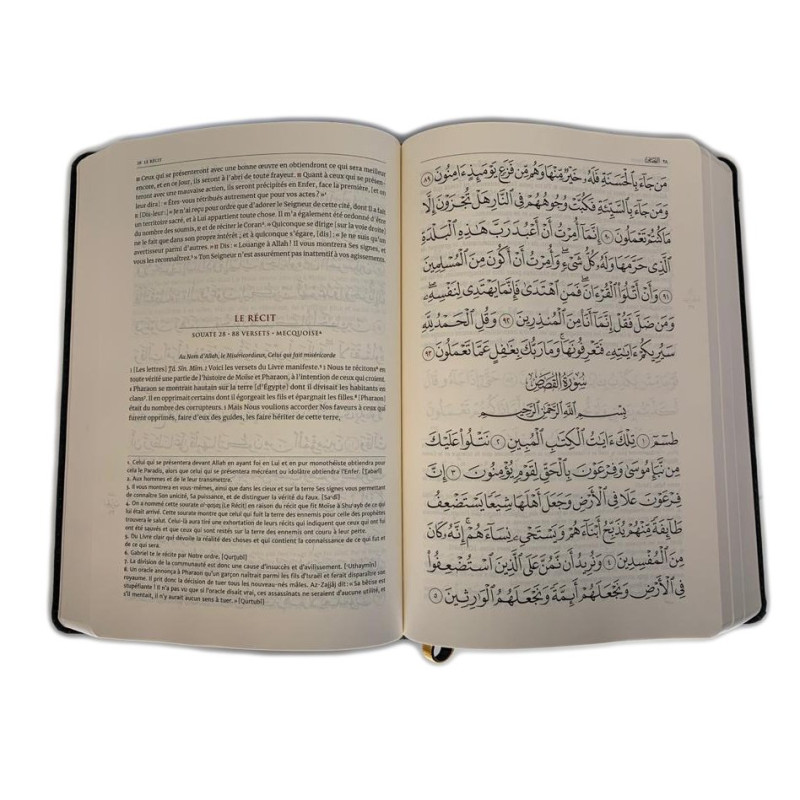 28 LE RÉCIT
89 Ceux qui se présenteront avec une bonne œuvre en obtiendront ce qui sera meilleur
encore, et en ce jour, ils seront à l'abri de toute frayeur. 90 Quant à ceux qui se présen-
teront avec une mauvaise action, ils seront précipités en Enfer, face la première, [et on
leur dira] : « Êtes-vous rétribués autrement que pour vos actes ? »¹
91 [Dis-leur :] « Je n'ai reçu pour ordre que d'adorer le Seigneur de cette cité, dont Il a fait
un territoire sacré, et à Lui appartient toute chose. Il m'a également été ordonné d'être
du nombre des soumis, 92 et de réciter le Coran². » Quiconque se dirige [sur la voie droite]
ne le fait que dans son propre intérêt ; et à quiconque s'égare, [dis] : « Je ne suis qu'un
avertisseur parmi d'autres. » 93 Dis : « Louange à Allah ! Il vous montrera Ses signes, et
vous les reconnaîtrez.³ » Ton Seigneur n'est assurément pas inattentif à vos agissements.
LE RÉCIT
SOUATE 28 • 88 VERSETS • MECQUOISE⁴
Au Nom d'Allah, le Miséricordieux, Celui qui fait miséricorde
1 [Les lettres] Tâ. Sîn. Mîm. 2 Voici les versets du Livre manifeste.⁵ 3 Nous te récitons⁶ en
toute vérité une partie de l'histoire de Moïse et Pharaon, à l'intention de ceux qui croient.
4 Pharaon se montrait hautain sur la terre [d'Égypte] dont il divisait les habitants en
clans⁷. Il en opprimait certains dont il égorgeait les fils et épargnait les filles.⁸ [Pharaon]
était du nombre des corrupteurs. 5 Mais Nous voulions accorder Nos faveurs à ceux qui
furent opprimés, faire d'eux des guides, les faire hériter de cette terre,
1. Celui qui se présentera devant Allah en ayant foi en Lui et en pur monothéiste obtiendra pour
cela le Paradis, alors que celui qui se présentera mécréant ou idolâtre obtiendra l'Enfer. (Ṭabarî)
2. Aux hommes et de le leur transmettre.
3. Il vous montrera en vous-mêmes, ainsi que dans les cieux et sur la terre Ses signes vous permettant
de connaître Son unicité, Sa puissance, et de distinguer la vérité du faux. (Sa'dî)
4. On a nommé cette sourate al-qaṣaṣ (Le Récit) en raison du récit que fit Moïse à Shu'ayb de ce qui
lui était arrivé. Cette sourate montre que celui qui fuit la terre des ennemis pour celle des prophètes
trouvera le salut. Celui-là aura tiré une exhortation de leurs récits qui indiquent que ceux qui ont fui
ont été sauvés et que ceux qui sont restés sur la terre des ennemis ont couru à leur perte.
5. Du Livre clair qui dévoile la réalité des choses et qui contient la connaissance de ce qui fut et
de ce qui sera.
6. Gabriel te le récite par Notre ordre. (Qurṭubî)
7. La division de la communauté est donc une cause d'insuccès et d'avilissement. ('Uthaymîn)
8. Un oracle annonça à Pharaon qu'un garçon naîtrait parmi les fils d'Israël et ferait disparaître son
royaume. Il prit donc la décision de tuer tous les nouveau-nés mâles. Az-Zajjâj dit : « Sa bêtise est
stupéfiante ! Il n'a pas vu que si l'oracle disait vrai, ces assassinats ne seraient d'aucune utilité, et
s'il mentait, il n'y aurait aucun sens à tuer. » (Qurtubî)
٢٨ القصص
مَن جَآءَ بِٱلْحَسَنَةِ فَلَهُۥ خَيْرٌ مِّنْهَا وَهُم مِّن فَزَعٍ يَوْمَئِذٍ ءَامِنُونَ ٨٩
وَمَن جَآءَ بِٱلسَّيِّئَةِ فَكُبَّتْ وُجُوهُهُمْ فِى ٱلنَّارِ هَلْ تُجْزَوْنَ إِلَّا
مَا كُنتُمْ تَعْمَلُونَ ٩٠ إِنَّمَآ أُمِرْتُ أَنْ أَعْبُدَ رَبَّ هَٰذِهِ ٱلْبَلْدَةِ
ٱلَّذِى حَرَّمَهَا وَلَهُۥ كُلُّ شَىْءٍ ۖ وَأُمِرْتُ أَنْ أَكُونَ مِنَ ٱلْمُسْلِمِينَ
٩١ وَأَنْ أَتْلُوَا۟ ٱلْقُرْءَانَ ۖ فَمَنِ ٱهْتَدَىٰ فَإِنَّمَا يَهْتَدِى لِنَفْسِهِۦ ۖ
وَمَن ضَلَّ فَقُلْ إِنَّمَآ أَنَا۠ مِنَ ٱلْمُنذِرِينَ ٩٢ وَقُلِ ٱلْحَمْدُ لِلَّهِ
سَيُرِيكُمْ ءَايَٰتِهِۦ فَتَعْرِفُونَهَا ۚ وَمَا رَبُّكَ بِغَٰفِلٍ عَمَّا تَعْمَلُونَ ٩٣
سُورَةُ القَصَصِ
بِسْمِ ٱللَّهِ ٱلرَّحْمَٰنِ ٱلرَّحِيمِ
طسٓمٓ ١ تِلْكَ ءَايَٰتُ ٱلْكِتَٰبِ ٱلْمُبِينِ ٢ نَتْلُوا۟ عَلَيْكَ
مِن نَّبَإِ مُوسَىٰ وَفِرْعَوْنَ بِٱلْحَقِّ لِقَوْمٍ يُؤْمِنُونَ ٣ إِنَّ
فِرْعَوْنَ عَلَا فِى ٱلْأَرْضِ وَجَعَلَ أَهْلَهَا شِيَعًا يَسْتَضْعِفُ
طَآئِفَةً مِّنْهُمْ يُذَبِّحُ أَبْنَآءَهُمْ وَيَسْتَحْىِۦ نِسَآءَهُمْ ۚ إِنَّهُۥ كَانَ
مِنَ ٱلْمُفْسِدِينَ ٤ وَنُرِيدُ أَن نَّمُنَّ عَلَى ٱلَّذِينَ ٱسْتُضْعِفُوا۟
فِى ٱلْأَرْضِ وَنَجْعَلَهُمْ أَئِمَّةً وَنَجْعَلَهُمُ ٱلْوَٰرِثِينَ ٥